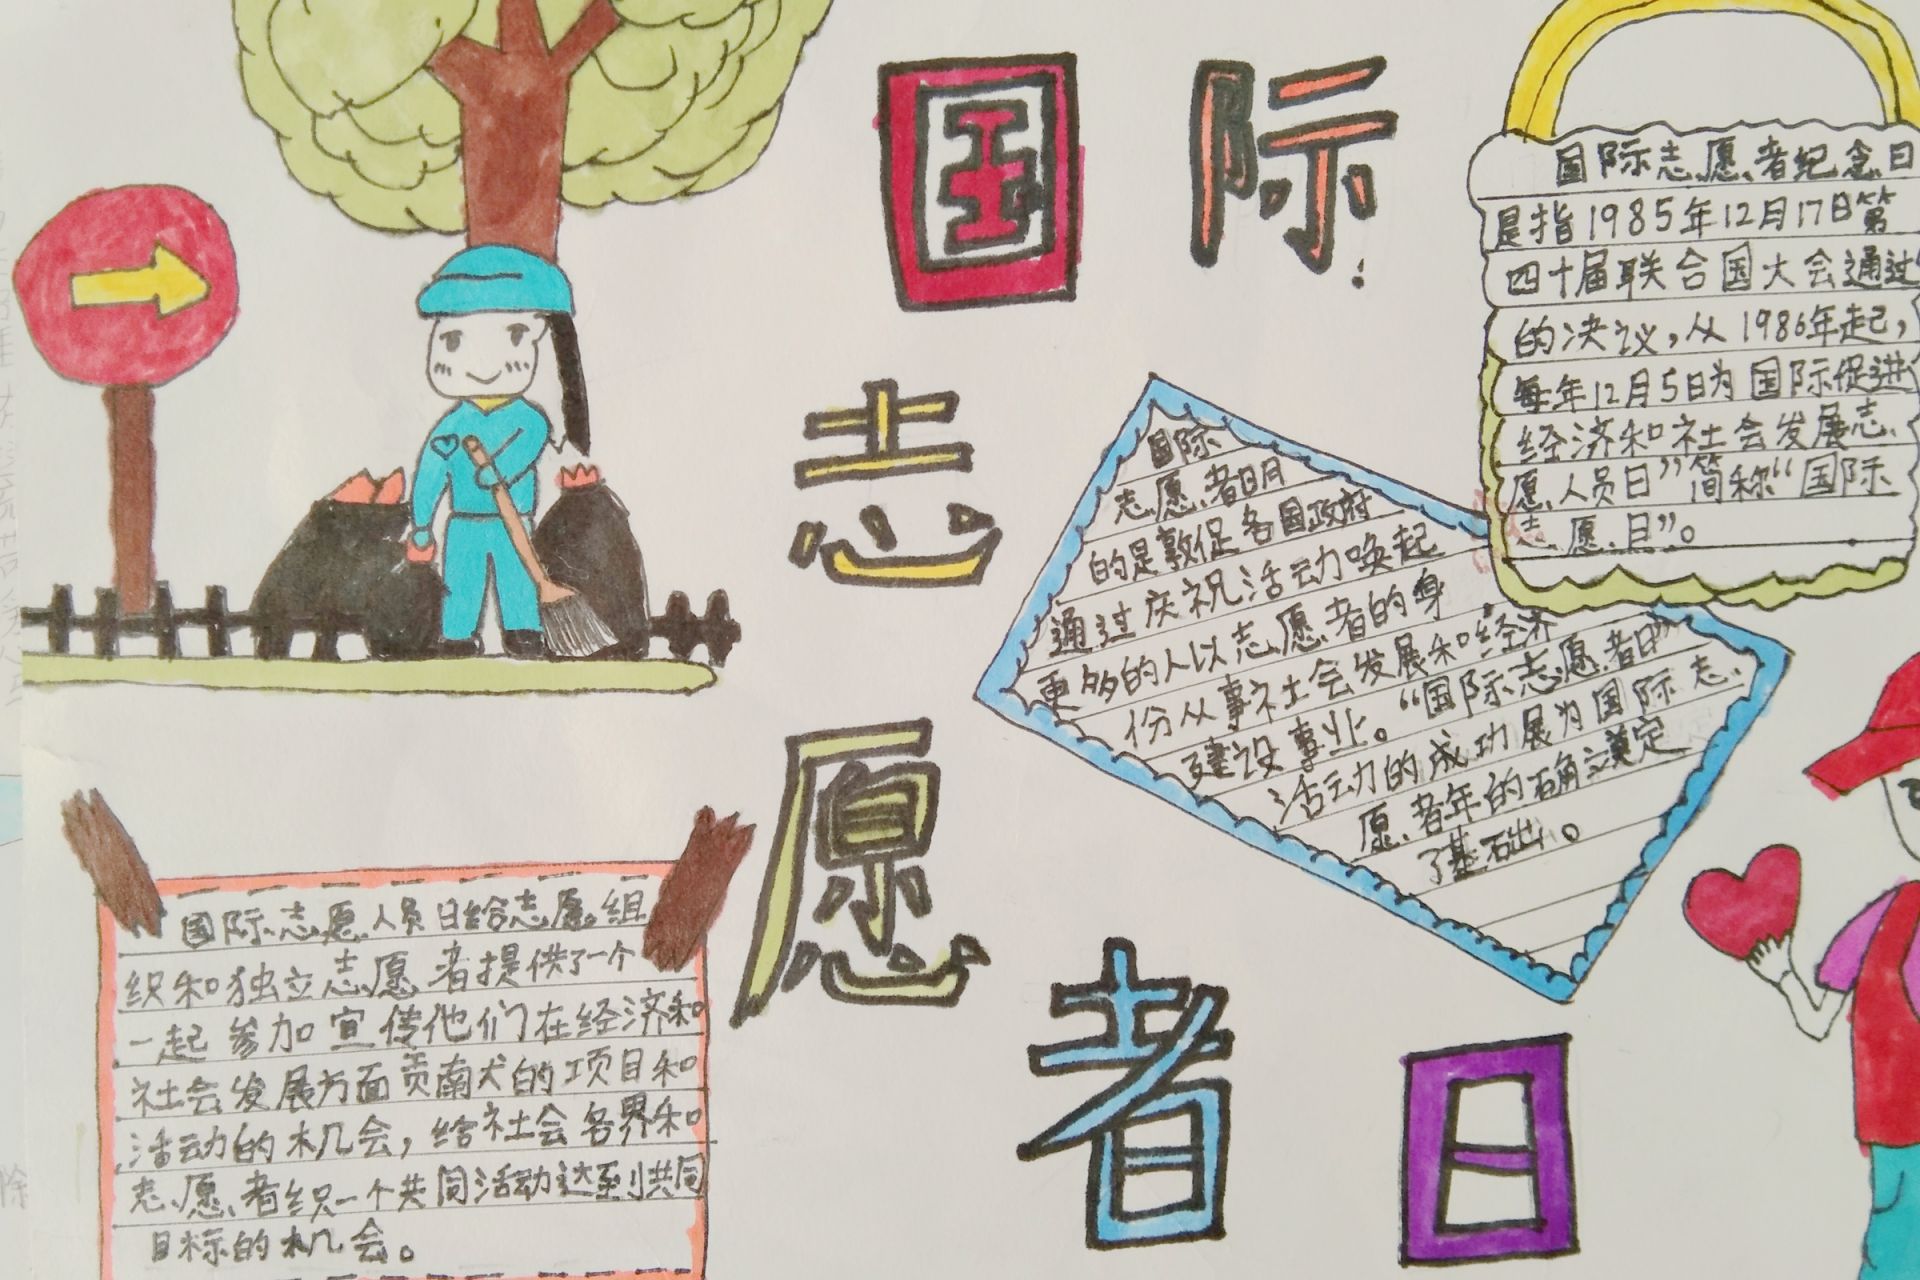 国际
志
愿
者
日
国际志愿者纪念日
是指1985年12月17日第
四十届联合国大会通过
的决议,从1986年起,
每年12月5日为国际促进
经济和社会发展志
愿人员日”简称“国际
志愿日”。
国际
志愿者日月
的是敦促各国政府
通过庆祝活动唤起
更多的人以志愿者的身
份从事社会发展和经济
建设事业。“国际志愿者日”
活动的成功展为国际志
愿者年的确立奠定
了基础。
国际志愿人员日给志愿组
织和独立志愿者提供了一个
一起参加宣传他们在经济和
社会发展方面贡献的项目和
活动的机会,给社会各界和
志愿者织一个共同活动达到共同
目标的机会。